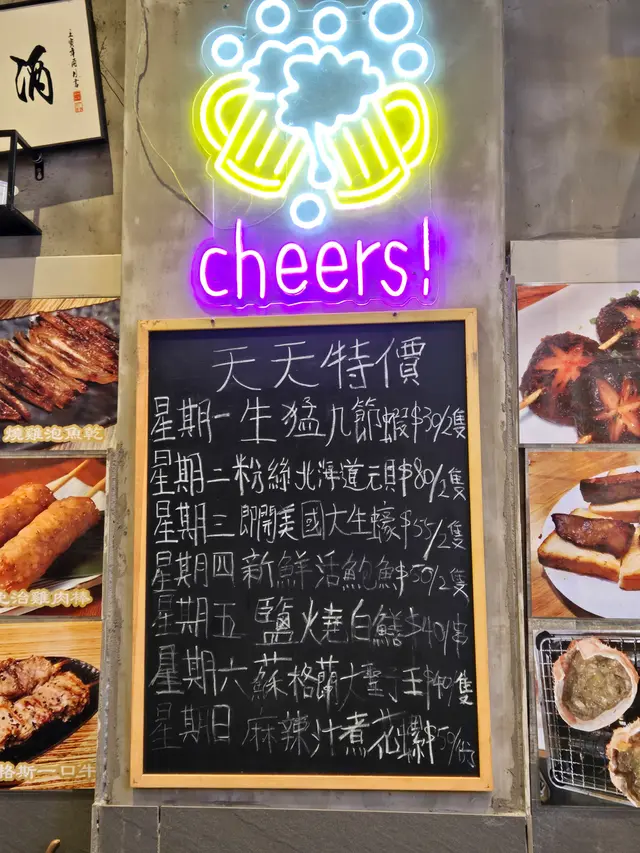 酒
cheers!
天天特價
星期一生猛九節蝦$30/2隻
星期二粉絲北海道元貝$80/2隻
星期三即開美國大生蠔$55/2隻
星期四新鮮活鮑魚$50/2隻
星期五鹽燒白鱔$40/串
星期六蘇格蘭大聖子王$40隻
星期日麻辣汁煮花螺$50/
燒雞泡魚乾
治雞肉棒
格斯一口牛